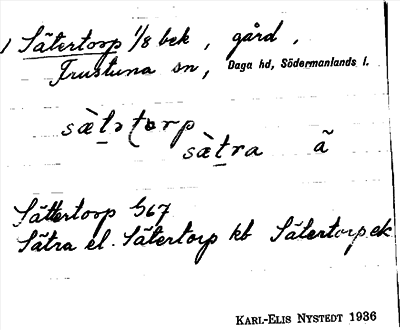 1 Sätertorp 1/8 bek, gård,
Frustuna sn, Daga hd, Södermanlands l.
sæ̀tətorp
sæ̀tra ã
Sättertorp 567
Sätra el. Sätertorp kb Sätertorp ek
KARL-ELIS NYSTEDT 1936